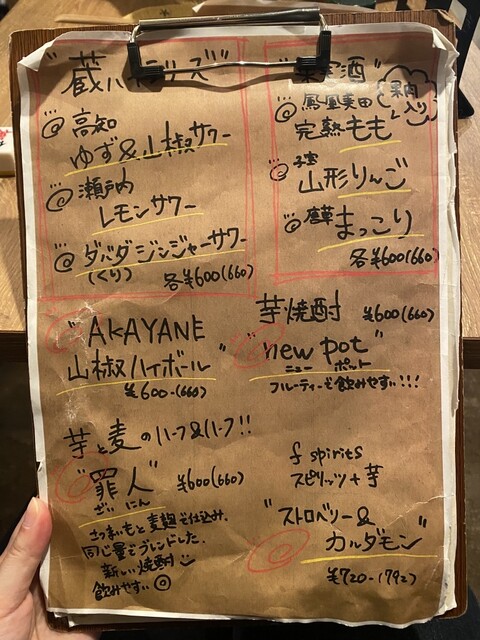 "蔵ハイシリーズ"
高知
ゆず&山椒サワー
瀬戸内
レモンサワー
ダバダジンジャーサワー
(くり)
各¥600(660)
"果実酒"
鳳凰美田
果肉入り
完熟もも
子宝
山形りんご
まっこり
各¥600(660)
"AKAYANE
山椒ハイボール"
¥600-(660)
芋焼酎 ¥600(660)
"new pot"
ニュー ポット
フルーティーで飲みやすい!!!
芋と麦のハーフ&ハーフ!!
"罪人" ¥600(660)
ざいにん
さつまいもと麦麹で仕込み.
同じ量でブレンドした.
新しい焼酎
飲みやすい
f spirits
スピリッツ+芋
"ストロベリー&
カルダモン"
¥720-(792)